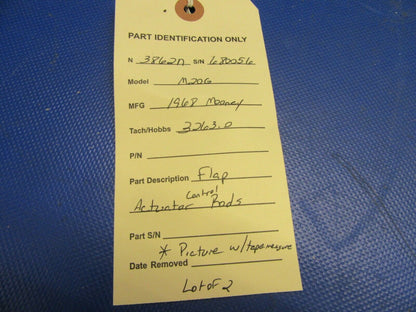 PART IDENTIFICATION ONLY
N 3862N S/N 680056
Model M20G
MFG 1968 Mooney
Tach/Hobbs 3263.0
P/N
Part Description Flap
Control
Actuator Rods
Part S/N
* Picture w/tape measure
Date Removed
Lot of 2